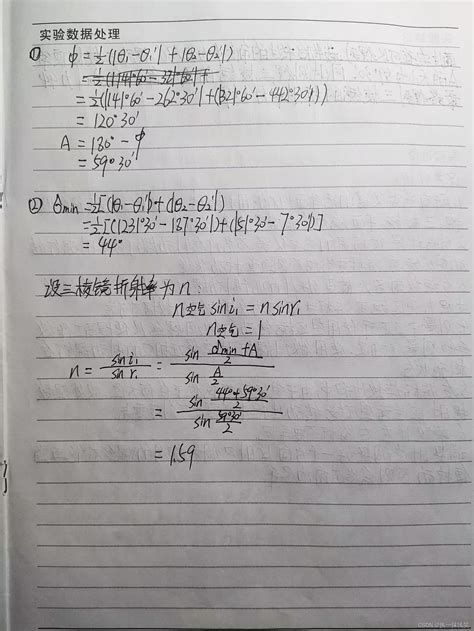 实验数据处理
① φ = ½(|θ₁-θ₁'| + |θ₂-θ₂'|)
= ½(|141°60'-262°30'|+(321°60'-442°30')|)
= 120°30'
A = 180° - φ
= 59°30'
② θmin = ½[(|θ₁-θ₁'|)+(|θ₂-θ₂'|)
= ½[(|231°30'-187°30'|)+(|51°30'-7°30'|)]
= 44°
设三棱镜折射率为n:
n空气 sin i₁ = n sin r₁
n空气 = 1
n = sin i₁ / sin r₁ = sin (σmin+A)/2 / sin A/2
= sin (44°+59°30')/2 / sin 59°30'/2
= 1.59
CSDN